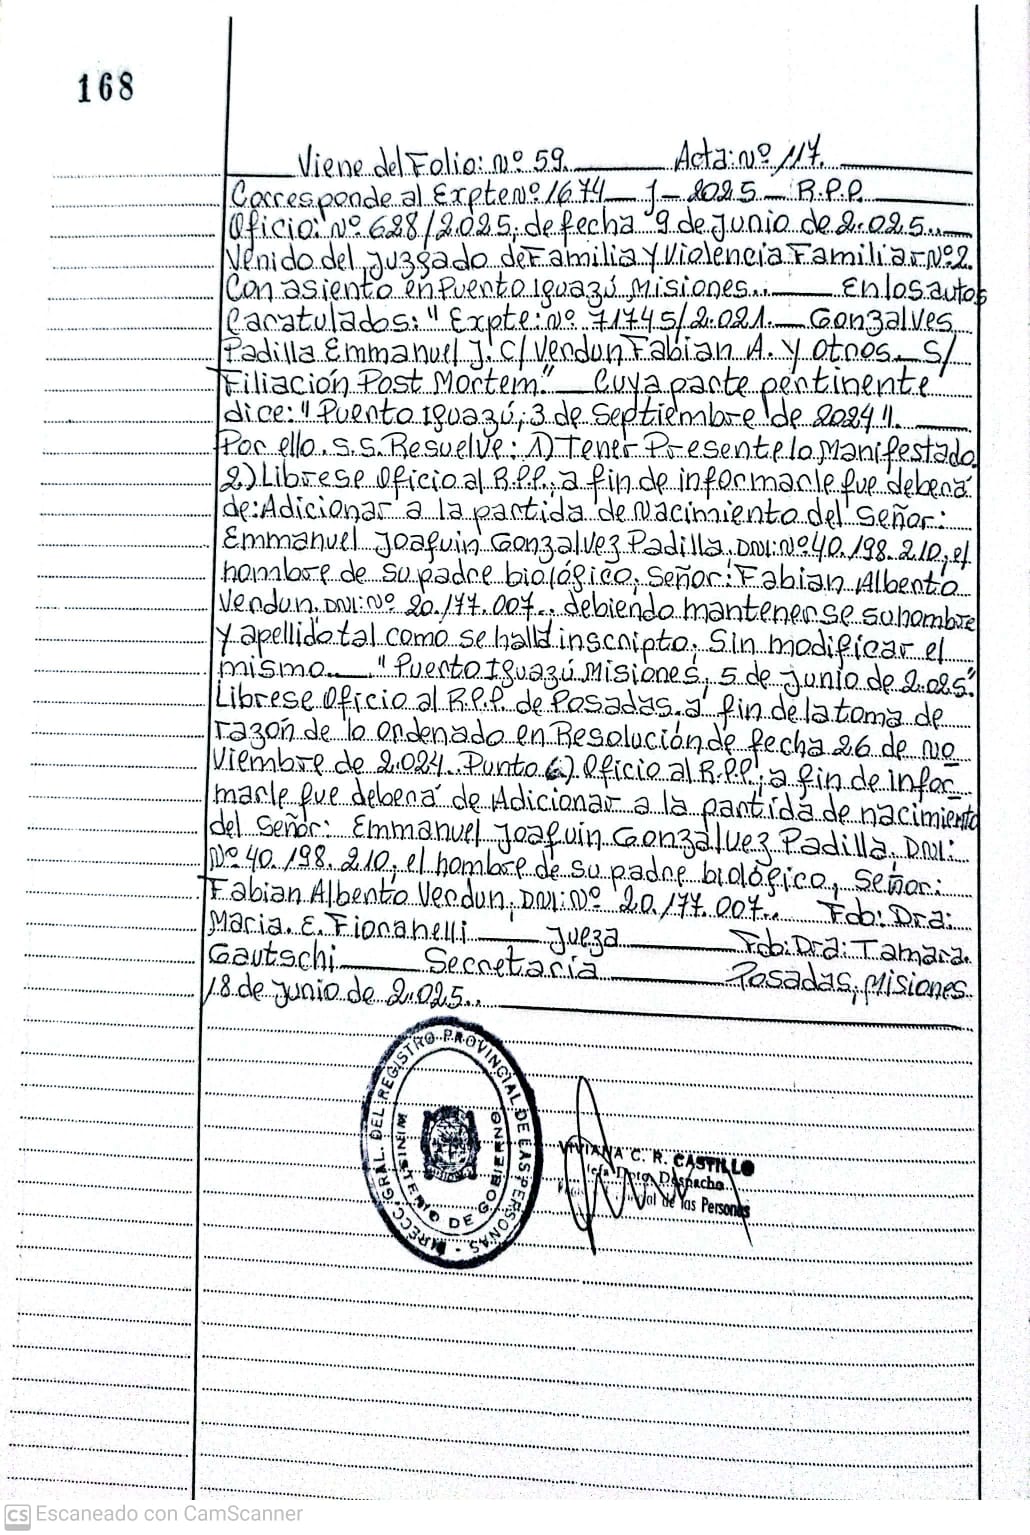 168
Viene del Folio: Nº 59. Acta: Nº 117.
Corresponde al Expte Nº 1674 - J - 2025 - R.P.P.
Oficio: Nº 628/2.025, de fecha 9 de Junio de 2.025..
Venido del Juzgado de Familia y Violencia Familiar Nº 2.
Con asiento en Puerto Iguazú Misiones... En los autos
Caratulados: "Expte: Nº 71745/2.021. - Gonzalves
Padilla Emmanuel J. C/ Verdun Fabian A. y otros - S/
Filiación Post Mortem." Cuya parte pertinente
dice: "Puerto Iguazú, 3 de Septiembre de 2024".
Por ello. S.S. Resuelve: 1) Tener Presente lo Manifestado
2) Librese Oficio al R.P.P., a fin de informarle que deberá
de: Adicionar a la partida de Nacimiento del Señor:
Emmanuel Joaquin Gonzalvez Padilla, DNI: Nº 40.198.210, el
nombre de su padre biológico, Señor: Fabian Alberto
Verdun. DNI: Nº 20.177.007.. debiendo mantenerse su nombre
y apellido tal como se halla inscripto, Sin modificar el
mismo. "Puerto Iguazú Misiones, 5 de Junio de 2.025."
Librese Oficio al R.P.P. de Posadas. a fin de la toma de
razón de lo ordenado en Resolución de fecha 26 de No
Viembre de 2.024. Punto 6) Oficio al R.P.P., a fin de infor
marle que deberá de Adicionar a la partida de nacimiento
del Señor: Emmanuel Joaquin Gonzalvez Padilla, DNI:
Nº 40.198.210, el nombre de su padre biológico, Señor:
Fabian Alberto Verdun, DNI: Nº 20.177.007.. Fdo: Dra:
Maria. E. Fioranelli Jueza Fdo: Dra: Tamara.
Gautschi Secretaria Posadas, Misiones
18 de Junio de 2.025..
DIRECC. GRAL. DEL REGISTRO PROVINCIAL DE LAS PERSONAS -
MINISTERIO DE GOBIERNO
VIVIANA C. R. CASTILLO
Jefa Dpto. Despacho
de las Personas
CS Escaneado con CamScanner